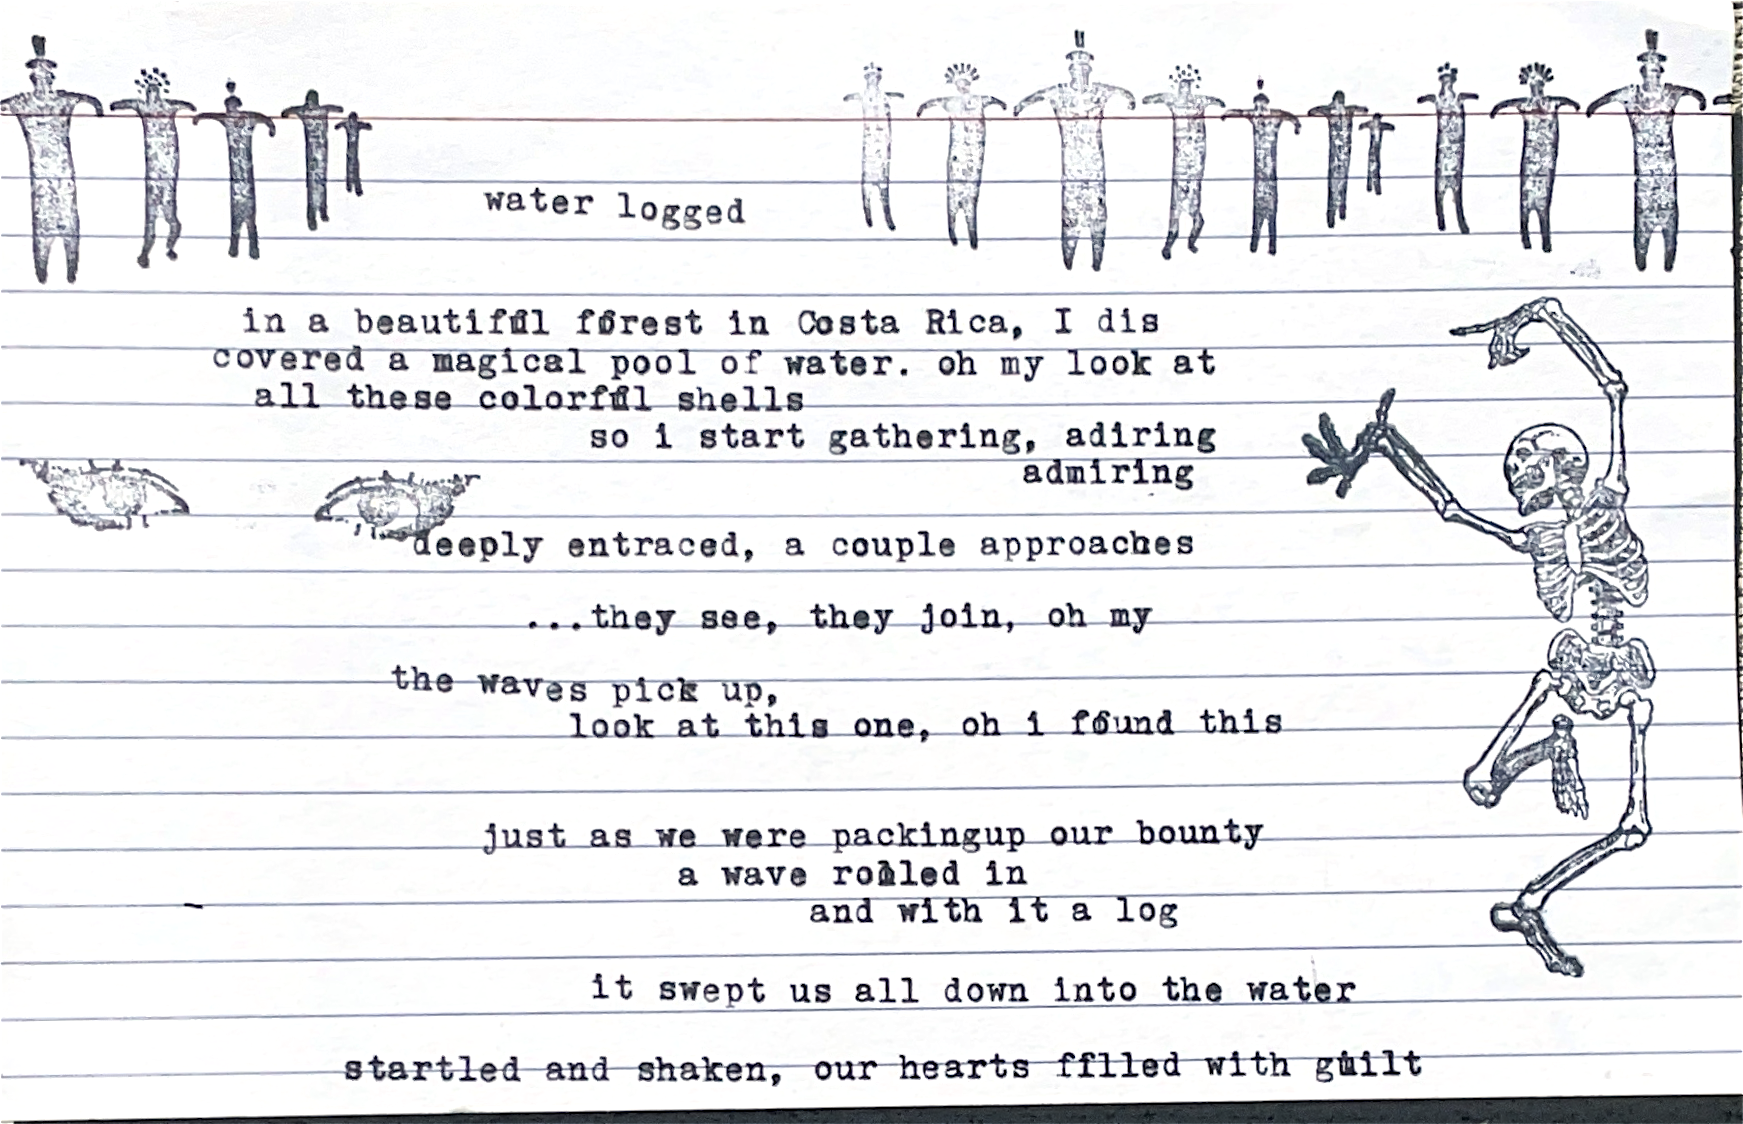 water logged
in a beautiful forest in Costa Rica, I dis
covered a magical pool of water. oh my look at
all these colorful shells
so i start gathering, adiring
admiring
deeply entraced, a couple approaches
...they see, they join, oh my
the waves pick up,
look at this one, oh i found this
just as we were packingup our bounty
a wave rolled in
and with it a log
it swept us all down into the water
startled and shaken, our hearts fflled with guilt